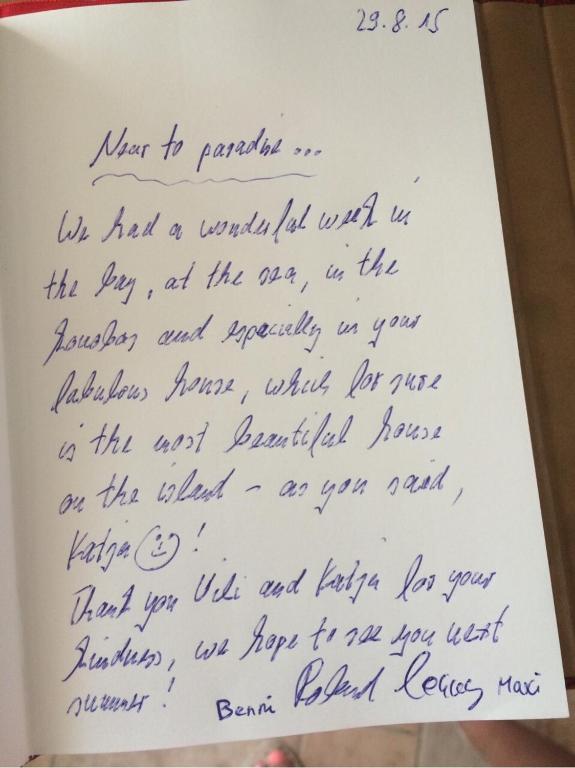 29.8.15
Near to paradise...
We had a wonderful week in
the bay, at the sea, in the
konobas and especially in your
fabulous house, which for sure
is the most beautiful house
on the island - as you said,
Katja ☺!
Thank you Vili and Katja for your
kindness, we hope to see you next
summer!
Benni Roland Maxi